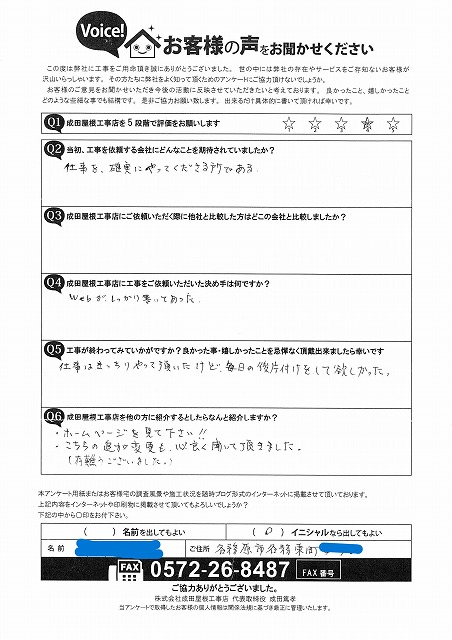 Voice!
お客様の声をお聞かせください
この度は弊社に工事をご用命頂き誠にありがとうございました。 世の中には弊社の存在やサービスをご存知ないお客様が
沢山いらっしゃいます。 その方たちに弊社をよく知って頂くためのアンケートにご協力頂けないでしょうか。
お客様のご意見をお聞かせいただき今後の活動に反映させていただきたいと考えております。 良かったこと、嬉しかったこと
どのような些細な事でも結構です。 是非ご協力お願い致します。 出来るだけ具体的に書いて頂ければ幸いです。
Q1 成田屋根工事店を5段階で評価をお願いします ☆ ☆ ☆ ☆ ☆
Q2 当初、工事を依頼する会社にどんなことを期待されていましたか?
仕事を、確実にやってくださる所である
Q3 成田屋根工事店にご依頼いただく際に他社と比較した方はどこの会社と比較しましたか?
Q4 成田屋根工事店に工事をご依頼いただいた決め手は何ですか?
Webがしっかり書いてあった.
Q5 工事が終わってみていかがですか?良かった事・嬉しかったことを忌憚なく頂戴出来ましたら幸いです
仕事はきっちりやって頂いたけど、毎日の後片付けをして欲しかった。
Q6 成田屋根工事店を他の方に紹介するとしたらなんと紹介しますか?
・ホームページを見て下さい!!
・こちらの追加変更も、心良く聞いて頂きました。
(有難うございました。)
本アンケート用紙またはお客様宅の調査風景や施工状況を随時ブログ形式のインターネットに掲載させて頂いております。
上記内容をインターネットや印刷物に掲載させて頂いてもよろしいでしょうか?
下記の中から〇印をお付下さい。
( ) 名前を出してもよい ( ○ ) イニシャルなら出してもよい
名 前 ご住所 各務原市各務東町
FAX 0572-26-8487 FAX 番号
ご協力ありがとうございました。
株式会社成田屋根工事店 代表取締役 成田篤孝
当アンケートで取得したお客様の個人情報は関係法規に基づき厳正に管理いたします。